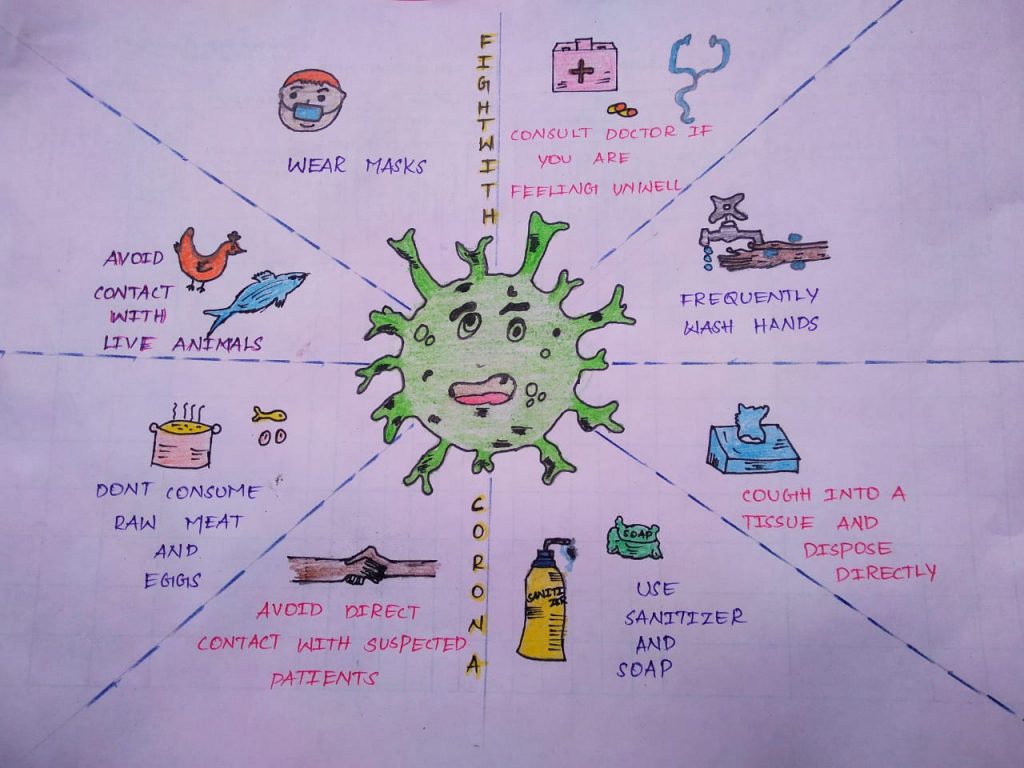 FIGHT WITH
CORONA
WEAR MASKS
CONSULT DOCTOR IF
YOU ARE
FEELING UNWELL
FREQUENTLY
WASH HANDS
COUGH INTO A
TISSUE AND
DISPOSE
DIRECTLY
SOAP
SANITI
ZER
USE
SANITIZER
AND
SOAP
AVOID DIRECT
CONTACT WITH SUSPECTED
PATIENTS
DONT CONSUME
RAW MEAT
AND
EGGS
AVOID
CONTACT
WITH
LIVE ANIMALS